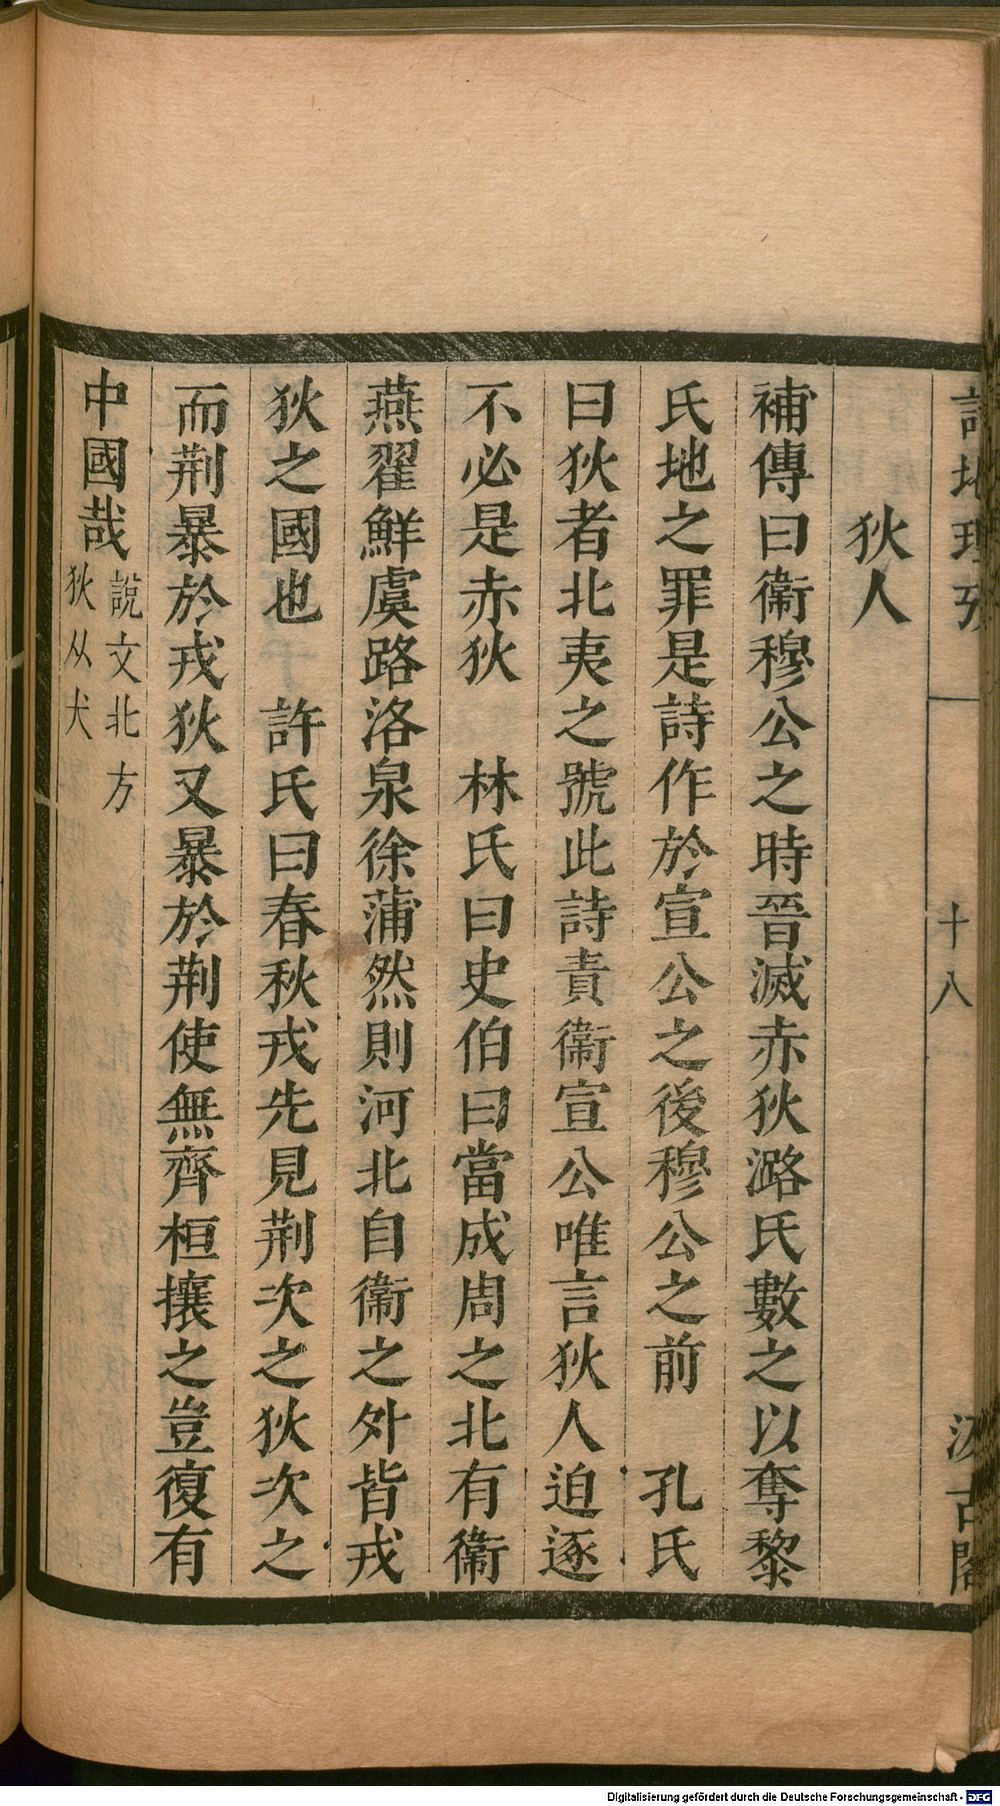 詩地理攷
十八
汲古閣
狄人
補傳曰衞穆公之時晉滅赤狄潞氏數之以奪黎
氏地之罪是詩作於宣公之後穆公之前　孔氏
曰狄者北夷之號此詩責衞宣公唯言狄人迫逐
不必是赤狄　林氏曰史伯曰當成周之北有衞
燕翟鮮虞路洛泉徐蒲然則河北自衞之外皆戎
狄之國也　許氏曰春秋戎先見荆次之狄次之
而荆暴於戎狄又暴於荆使無齊桓攘之豈復有
中國哉
說文北方
狄从犬
Digitalisierung gefördert durch die Deutsche Forschungsgemeinschaft - DFG